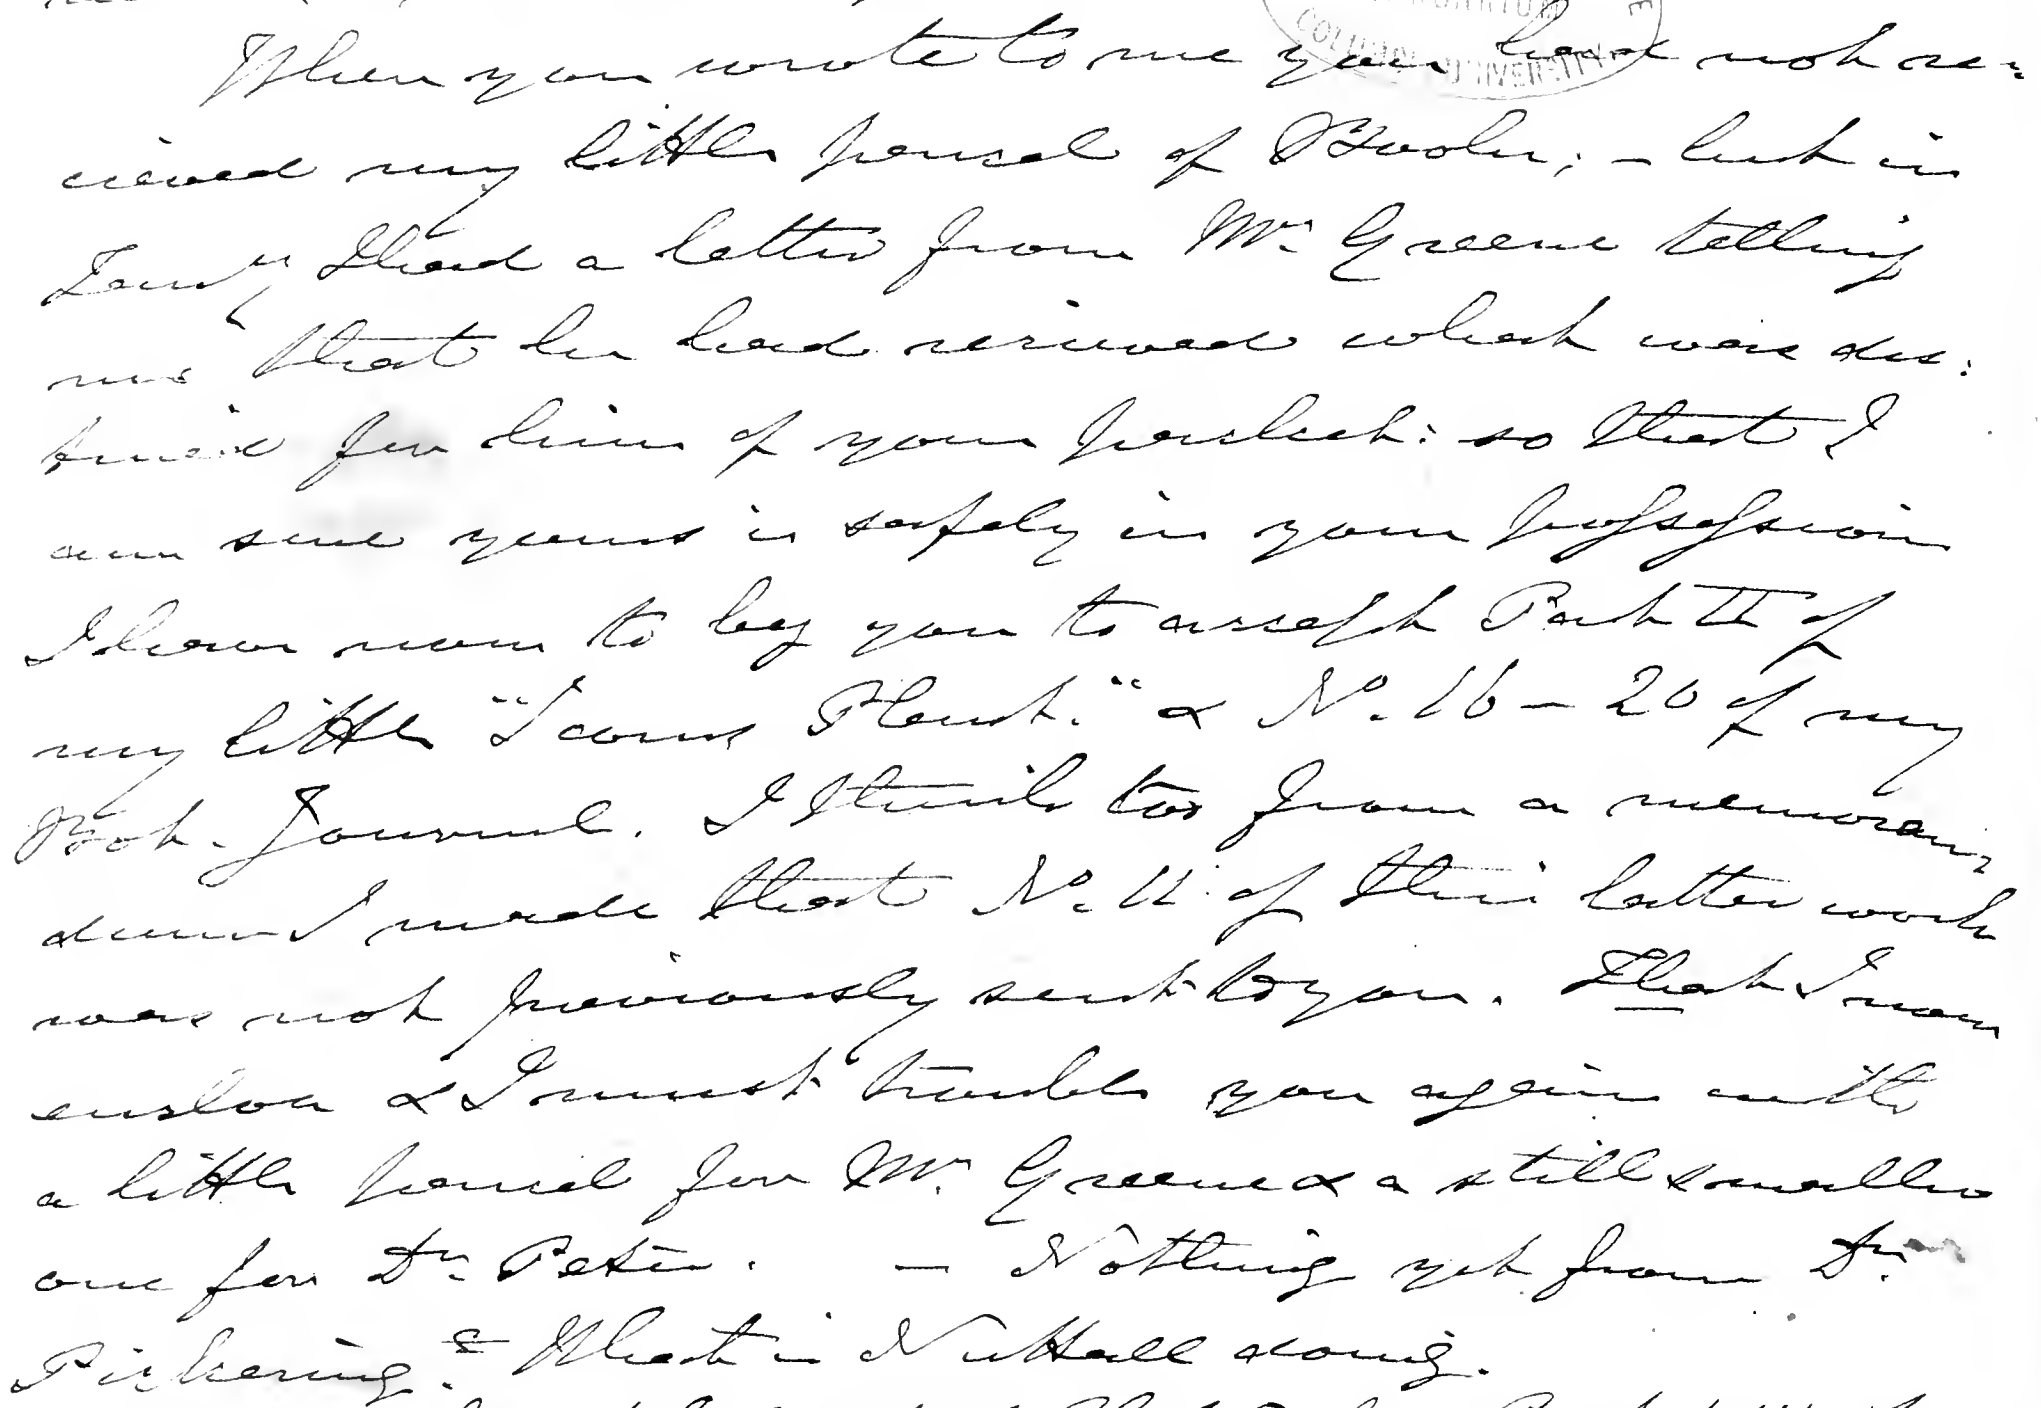 When you wrote to me you had not re-
cieved my little parcel of Books; - but in
Jany I had a letter from Mr Greene telling
me that he had recieved what was des:
tined for him of your packet: so that I
am sure yours is safely in your possession
I have now to beg you to accept Part II of
my little "Icones Plant." & No. 16 - 20 of my
Bot. Journal. I think too from a memoran-
dum I made that No. 11 of this latter work
was not previously sent to you. That I now
enclose & I must trouble you again with
a little parcel for Mr. Greene & a still smaller
one for Dr. Peter. - Nothing yet from Dr.
Pickering. What is Nuttall doing.